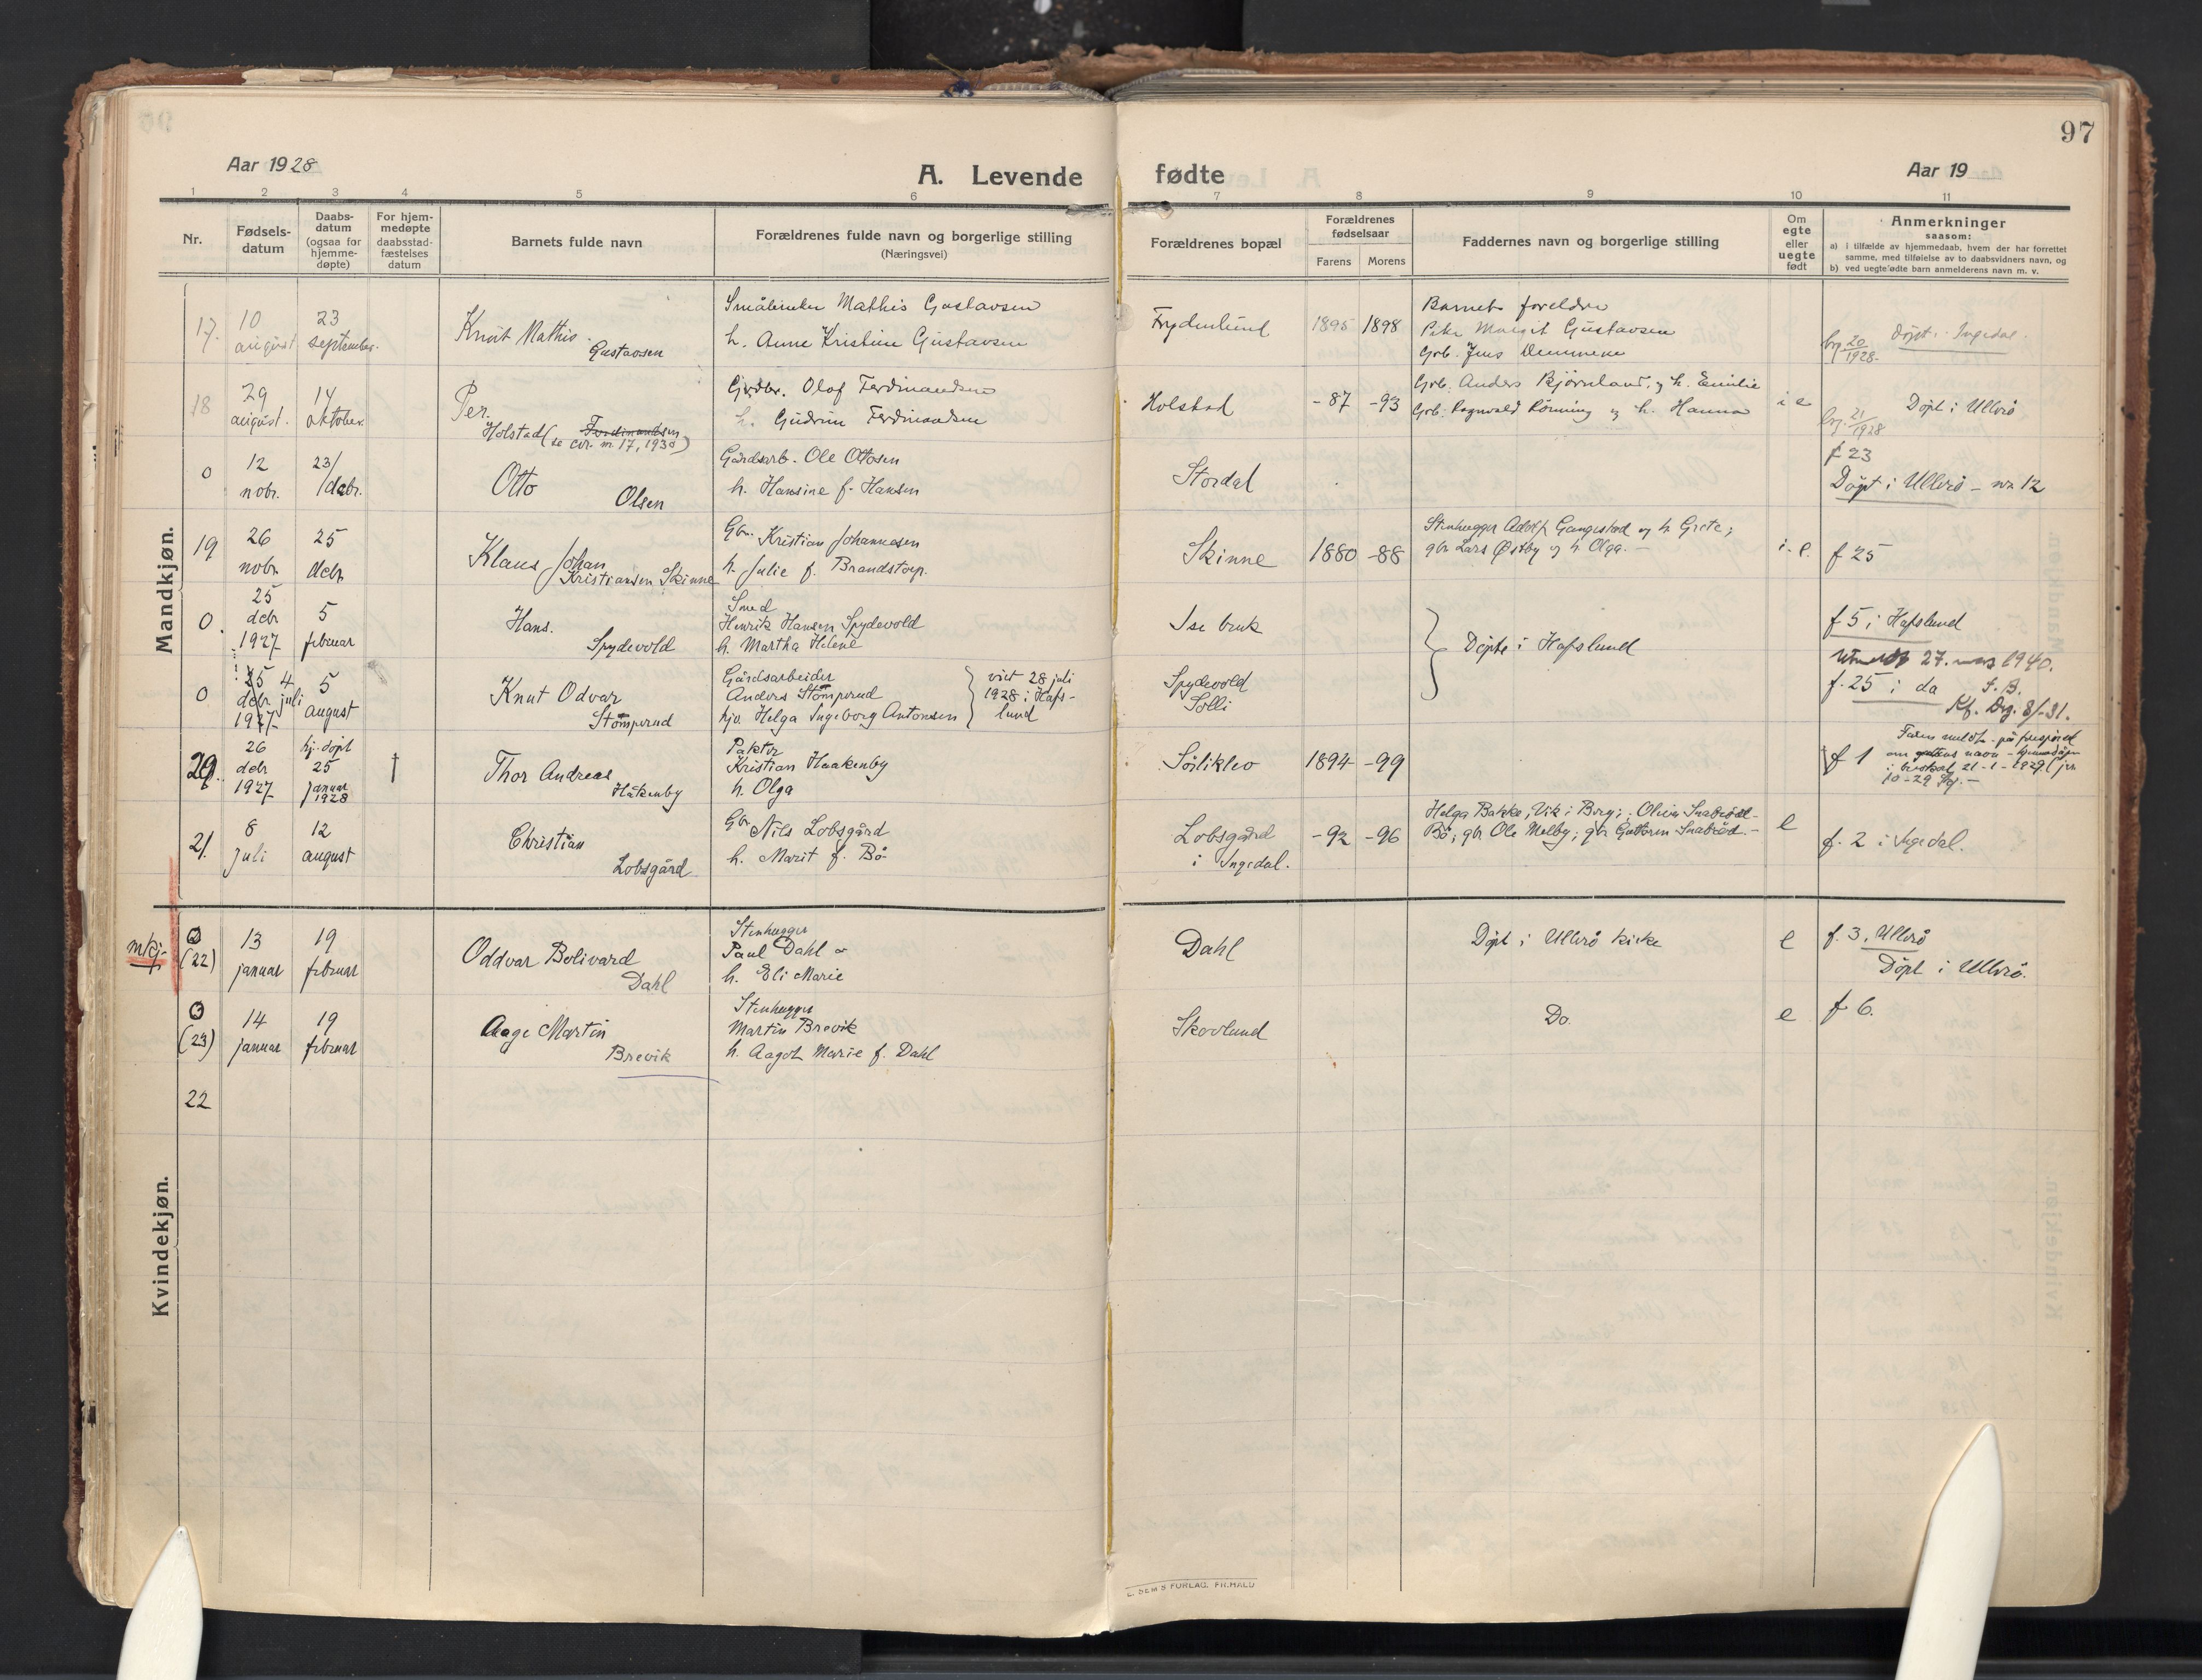 97
Aar 1928
A. Levende fødte
Aar 19
1 2 3 4 5 6 7 8 9 10 11
Nr.
Fødsels-
datum
Daabs-
datum
(ogsaa for
hjemme-
døpte)
For hjem-
medøpte
daabsstad-
fæstelses
datum
Barnets fulde navn
Forældrenes fulde navn og borgerlige stilling
(Næringsvei)
Forældrenes bopæl
Forældrenes
fødselsaar
Farens Morens
Faddernes navn og borgerlige stilling
Om
egte
eller
uegte
født
Anmerkninger
saasom:
a) i tilfælde av hjemmedaab, hvem der har forrettet
samme, med tilføielse av to daabsvidners navn, og
b) ved uegte fødte barn anmelderens navn m. v.
Mandkjøn.
17.
10
august
23
september.
Knut Mathis
Gustavsen
Småbruker Mathis Gustavsen
h. Anne Kristine Gustavsen
Frydenlund
1895 1898
Barnets foreldre
Pike Margit Gustavsen
Grb. Jens
20
1928
Døpt i Ingedal.
18
29
august.
14
oktober.
Per.
Holstad (Ferdinandsen
se cir. m. 17, 1930)
Grdbr. Olaf Ferdinandsen
h. Gudrun Ferdinandsen
Holstad
-87 -93
Grb. Anders Bjørnland, og h. Emilie
Grb. Ragnvald Rönning og h. Hanna
i e
21
1928
Döpt i Ullerö
0
12
nobr.
23/
debr.
Otto
Olsen
Gårdsarb. Ole Ottosen
h. Hansine f. Hansen
Stordal
f 23
Döpt i Ullerö - nr 12
19
26
nobr.
25
debr
Klaus Johan
Kristiansen Skinne
Gbr. Kristian Johannesen
h. Julie f. Brandstorp.
Skinne
1880 -88
Stenhugger Adolf Gangestad og h. Grete;
gbr Lars Østby og h. Olga. -
i. e.
f 25
0.
25
debr
1927
5
februar
Hans.
Spydevold
Smed
Henrik Hansen Spydevold
h. Martha Helene
Ise bruk
Döpte i Hafslund
f 5 i Hafslund
Utmeldt 27. mars 1940.
0
25 4
debr juli
1927
5
august
Knut Odvar
Stomperud
Gårdsarbeider
Anders Stomperud
hjv. Helga Ingeborg Antonsen
viet 28 juli
1928 i Hafs-
lund
Spydevold
Solli
f. 25 i do S.B.
Kf. Drg. 8/-31.
20.
26
debr
1927
hj. døpt
25
januar
1928
†
Thor Andreas
Håkenby
Paktor
Kristian Haakenby
h. Olga
Sörliklev
1894 -99
f 1
Faren meldt på forespörsel
om guttens navn -
21-1-1929. (jnr
10-29
21.
8
juli
12
august
Christian
Lobsgård
Gbr Nils Lobsgård
h. Marit f. Bö
Lobsgård
i Ingedal.
-92 -96
Helga Bakke, Vik i Borg;
Bö; gbr Ole Melby; gbr
e
f. 2 i Ingedal.
Kvindekjøn.
mkj.
0
(22)
13
januar
19
februar
Oddvar Bolivard
Dahl
Stenhugger
Paul Dahl
h. Eli Marie
Dahl
Döpt i Ullerö kirke
e
f. 3, Ullerö
Döpt i Ullerö.
0
(23)
14
januar
19
februar
Aage Martin
Brevik
Stenhugger
Martin Brevik
h. Aagot Marie f. Dahl
Skovlund
Do.
e
f 6.
22
E. SEM'S FORLAG. FR.HALD